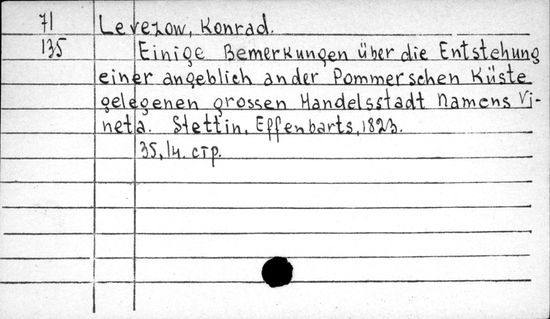 71 Levezow, Konrad.
135 Einige Bemerkungen über die Entstehung
einer angeblich an der Pommerschen Küste
gelegenen grossen Handelsstadt Namens Vi-
neta. Stettin, Effenbarts, 1823.
35, 14. стр.